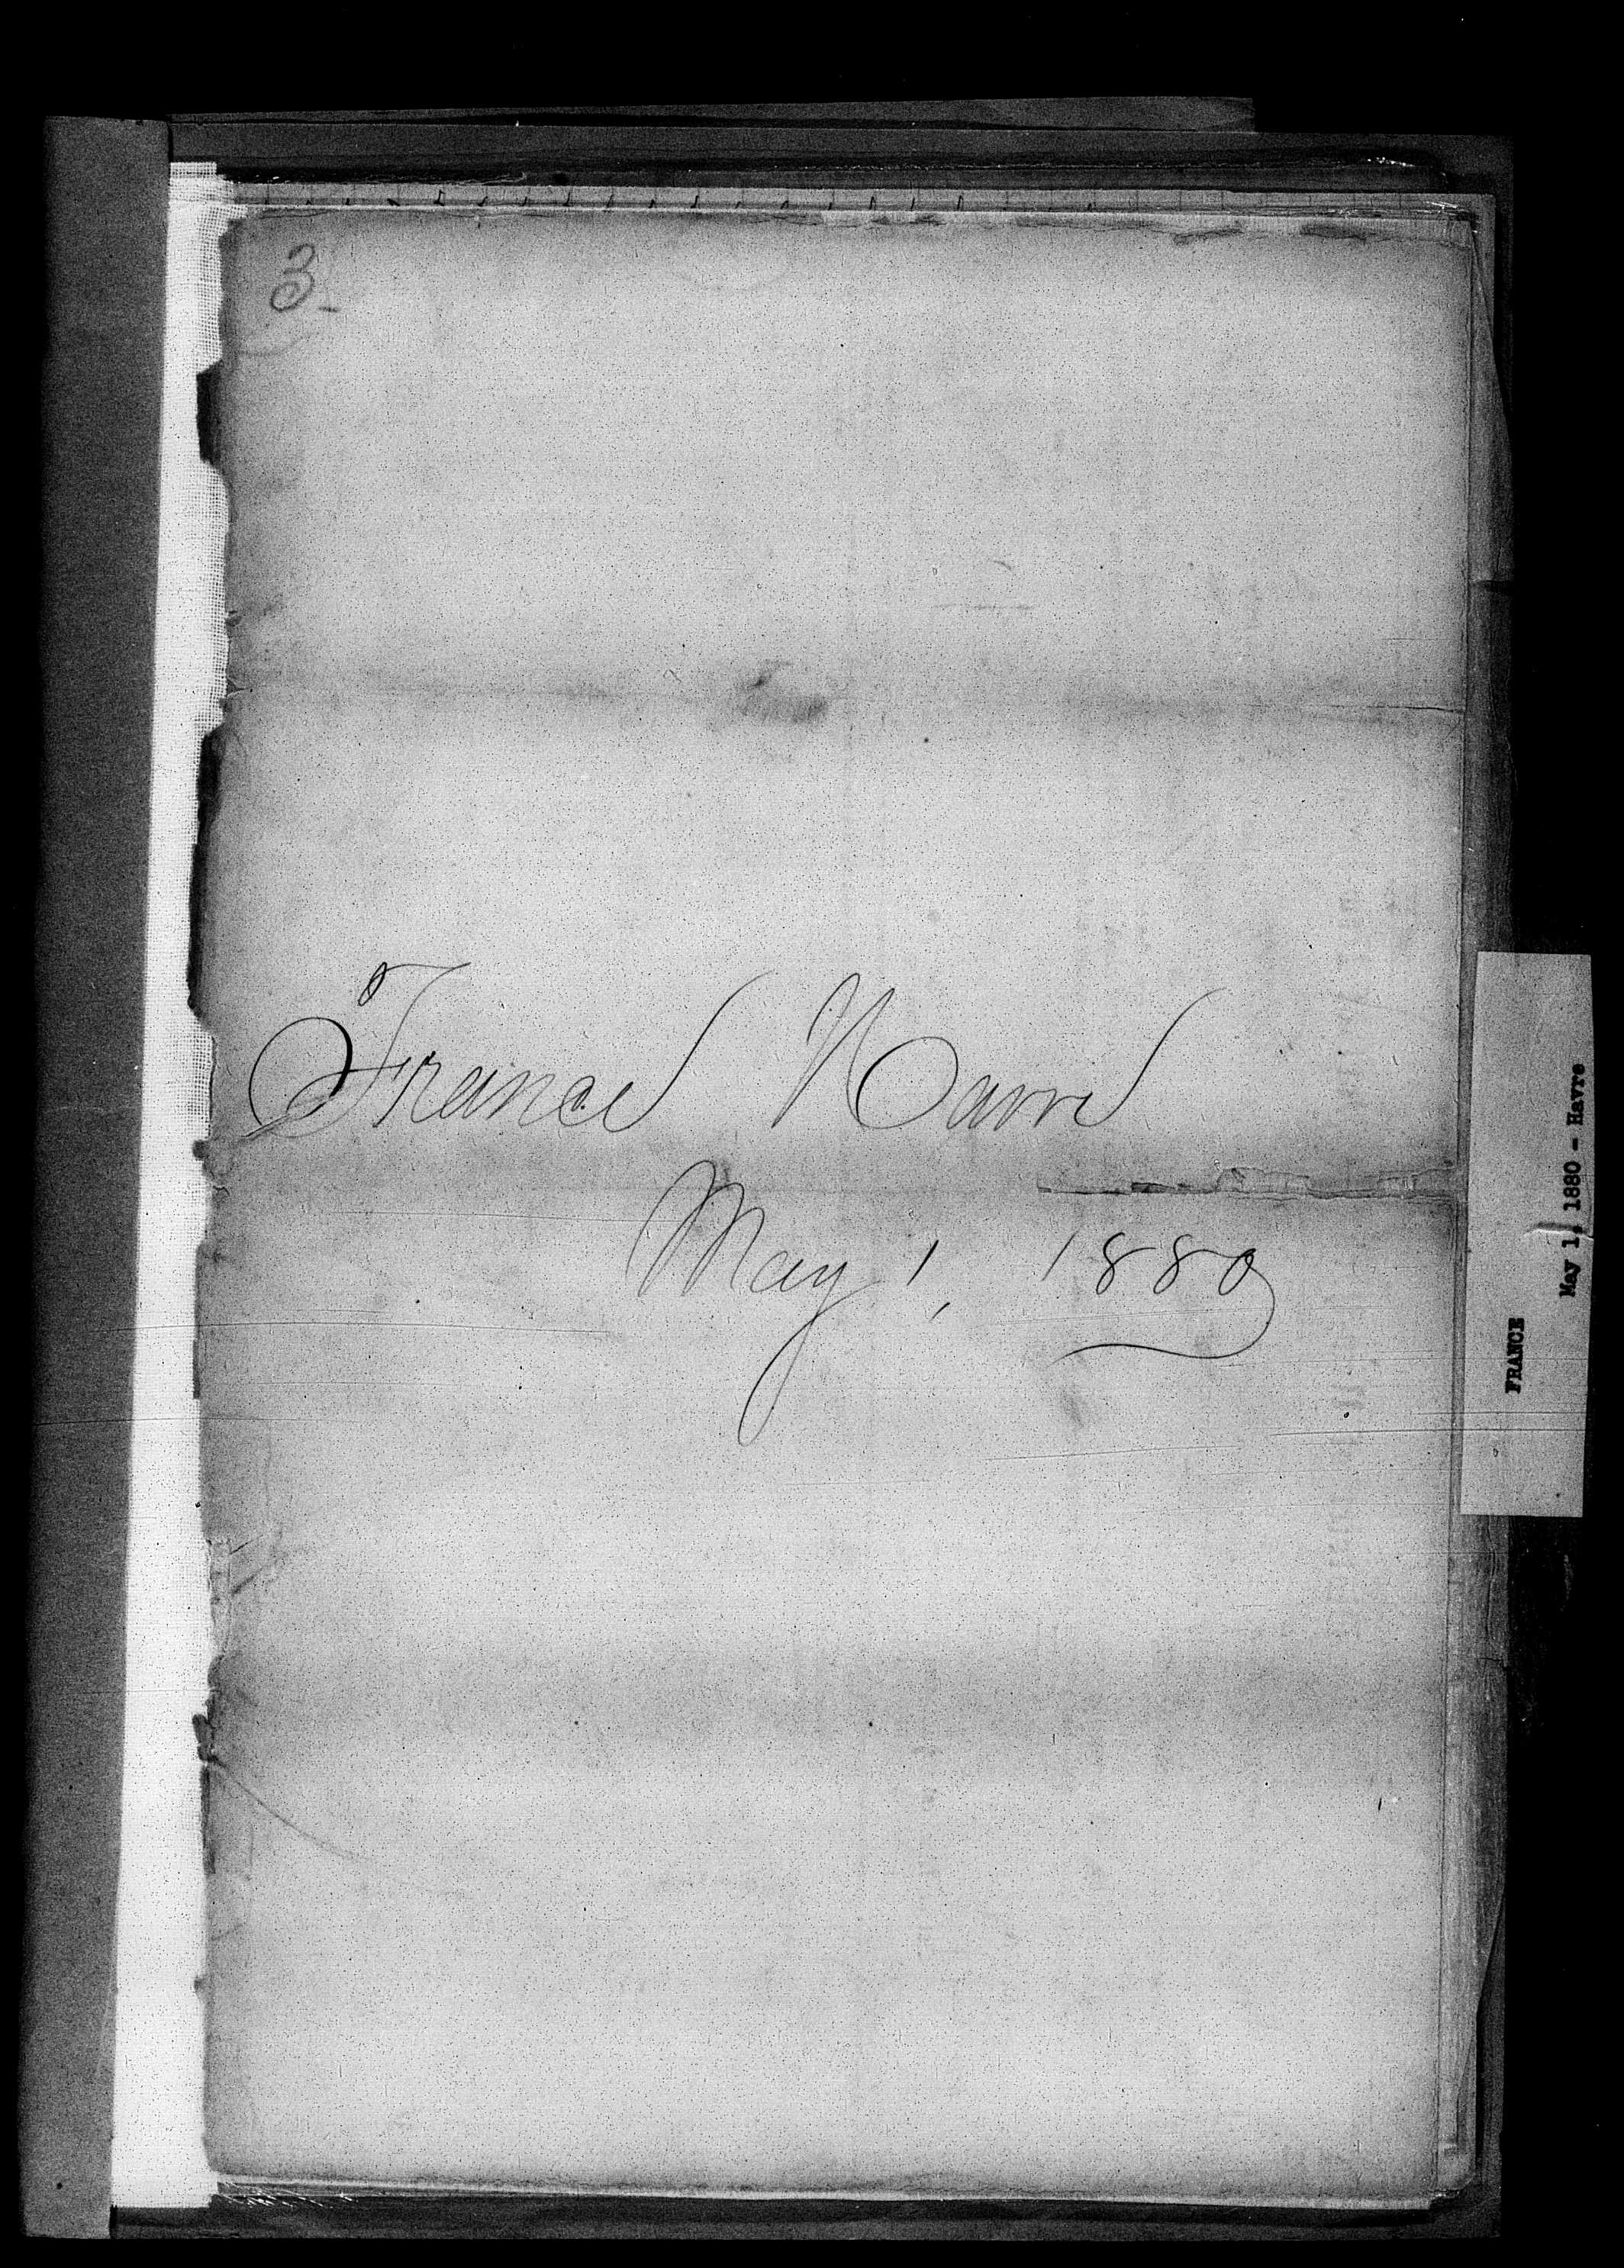 3
France Havre
May 1, 1880
FRANCE
May 1, 1880 - Havre